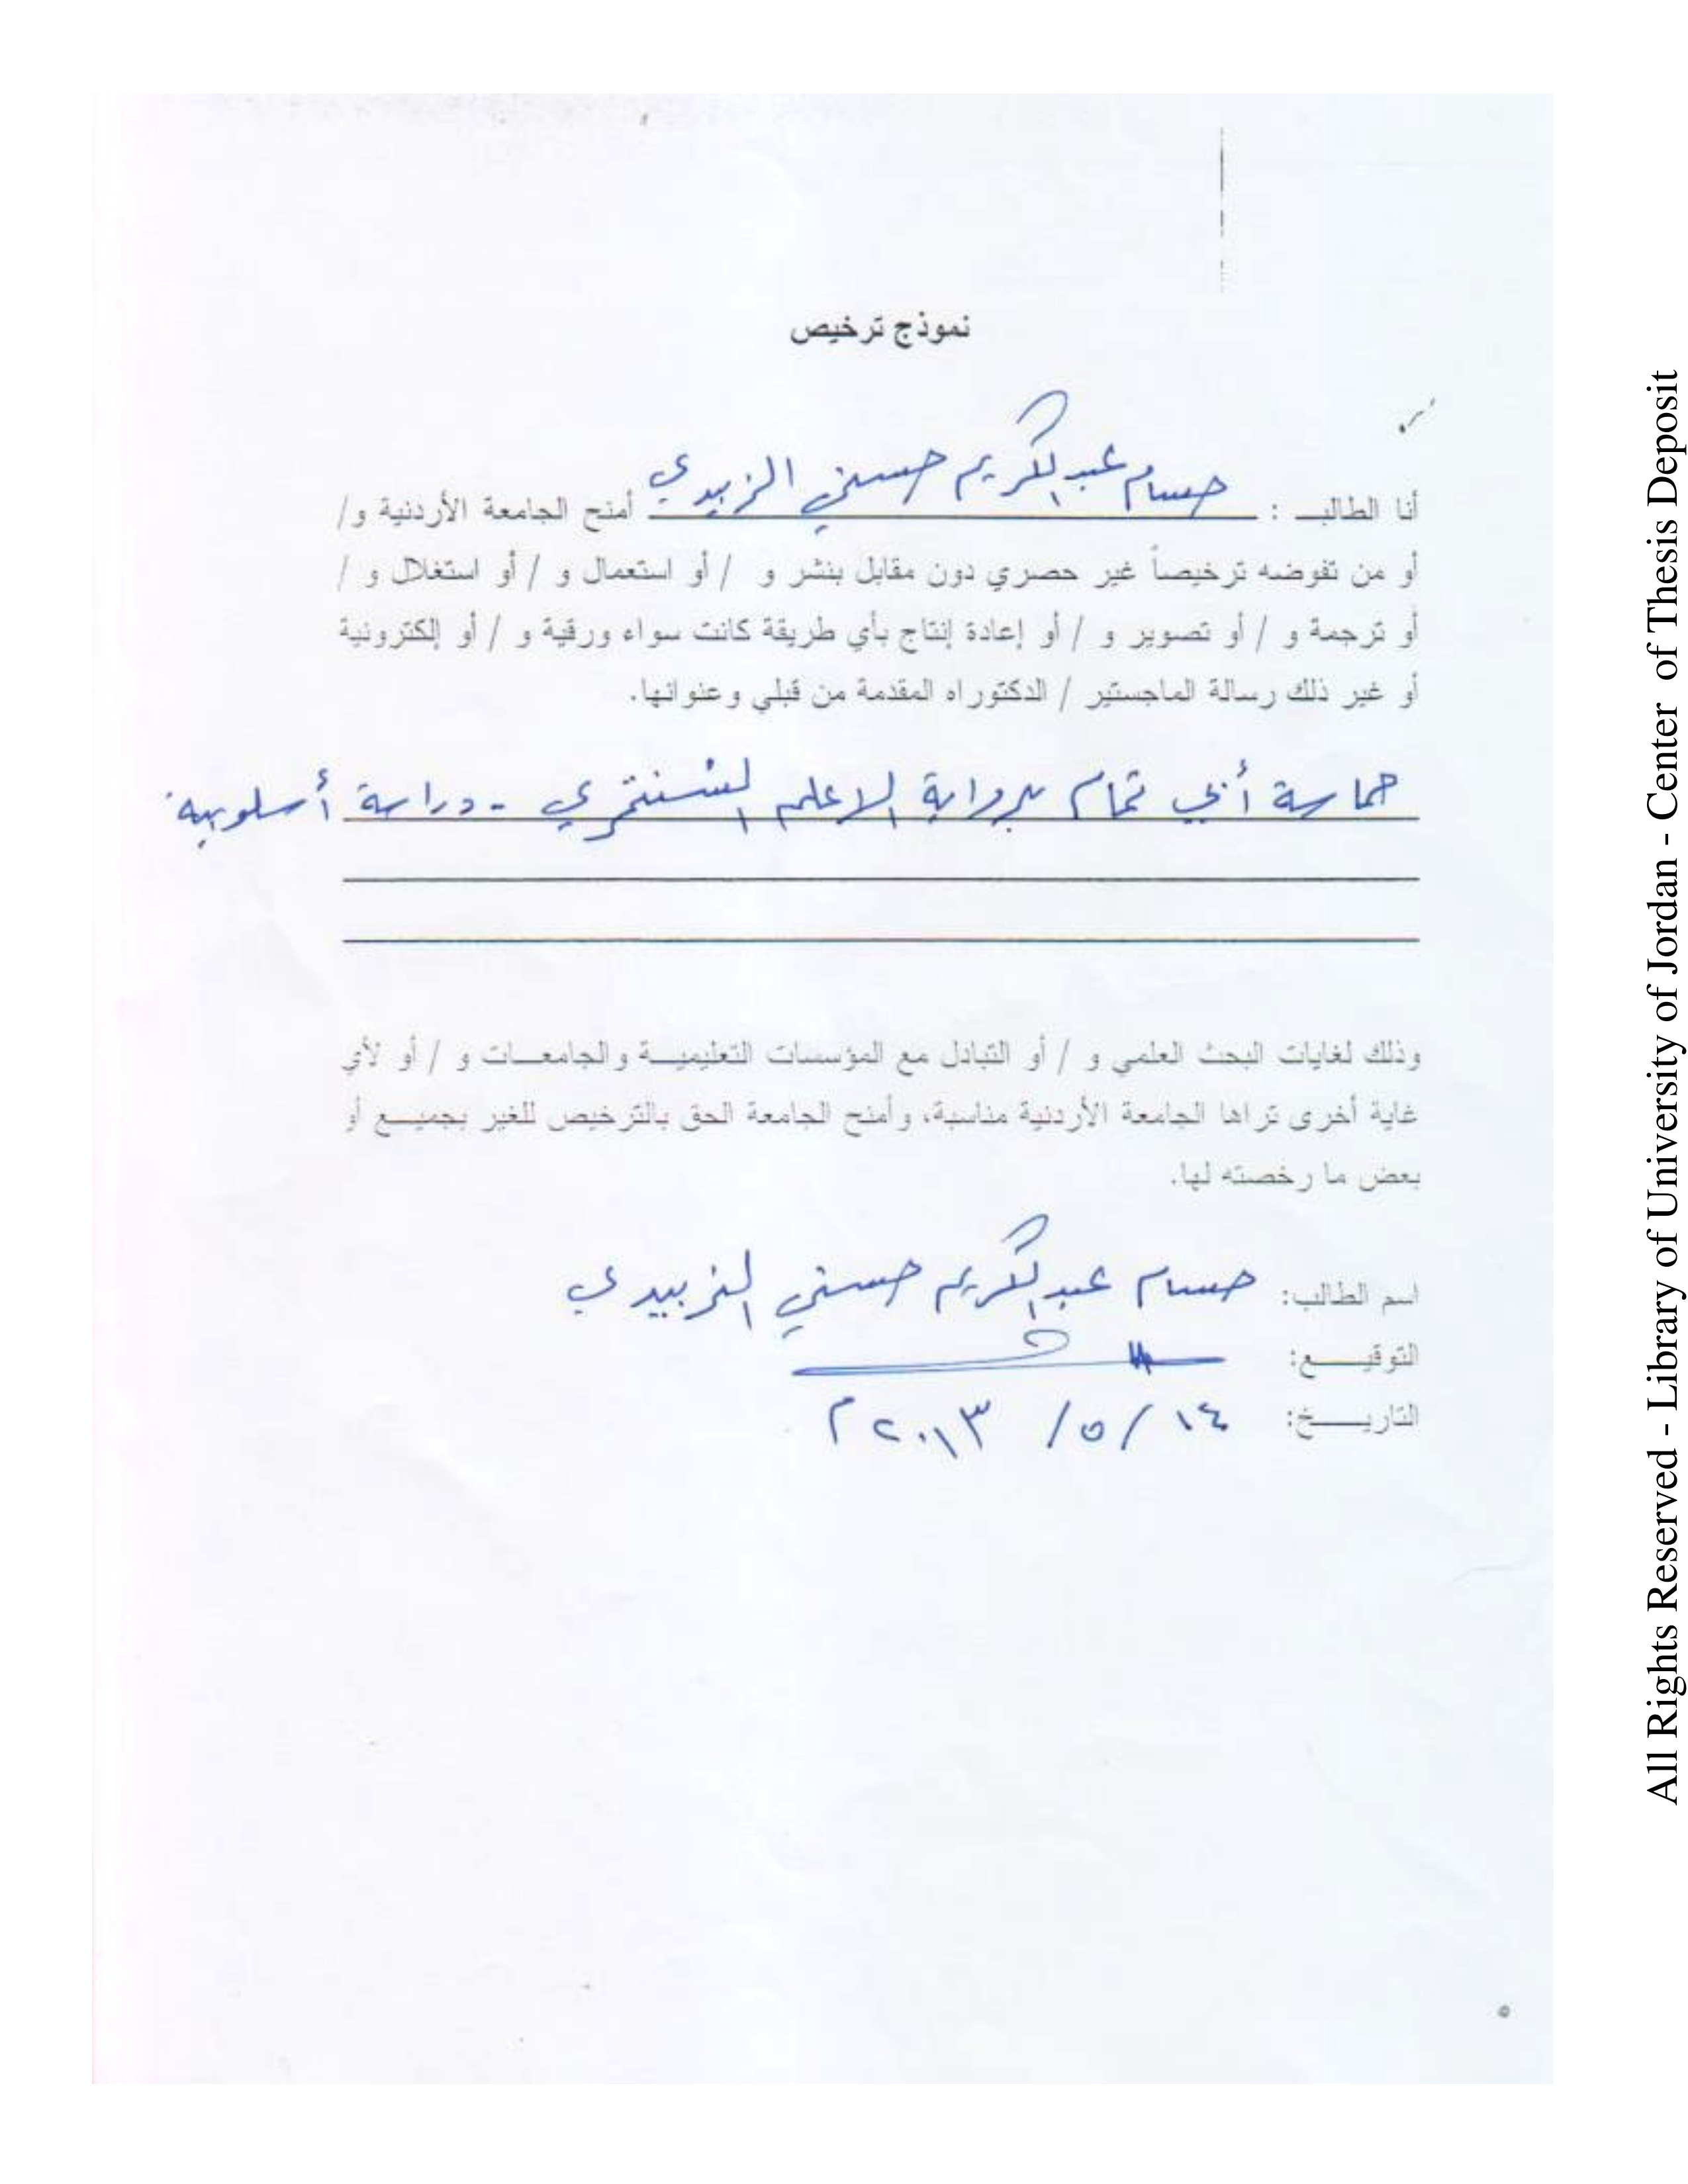 نموذج ترخيص
أنا الطالب : حسام عبد الكريم حسني الزبيدي أمنح الجامعة الأردنية و/
أو من تفوضه ترخيصاً غير حصري دون مقابل بنشر و / أو استعمال و / أو استغلال و /
أو ترجمة و / أو تصوير و / أو إعادة إنتاج بأي طريقة كانت سواء ورقية و / أو إلكترونية
أو غير ذلك رسالة الماجستير / الدكتوراه المقدمة من قبلي وعنوانها.
حماسة أبي تمام برواية الاعلم الشنتمري - دراسة أسلوبية.
وذلك لغايات البحث العلمي و / أو التبادل مع المؤسسات التعليمية والجامعات و / أو لأي
غاية أخرى تراها الجامعة الأردنية مناسبة، وأمنح الجامعة الحق بالترخيص للغير بجميع أو
بعض ما رخصته لها.
اسم الطالب: حسام عبد الكريم حسني الزبيدي
التوقيع:
التاريخ: ١٤ / ٥ / ٢٠١٣ م
٥
All Rights Reserved - Library of University of Jordan - Center of Thesis Deposit